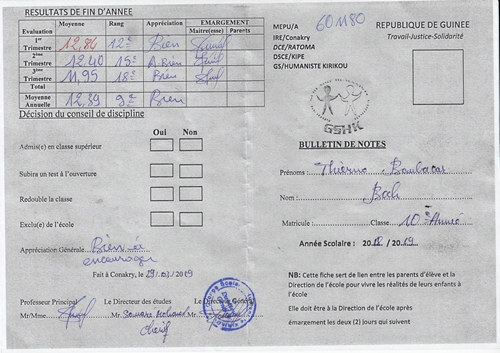 RESULTATS DE FIN D'ANNEE
Evaluation Moyenne Rang Appréciation EMARGEMENT
Maitre(sse) Parents
1er Trimestre 12,84 12e Bien
2ème Trimestre 12,40 15e A.Bien
3ème Trimestre 11,95 18e Bien
Total
Moyenne Annuelle 12,39 9e Bien
Décision du conseil de discipline
Oui Non
Admis(e) en classe supérieur
Subira un test à l'ouverture
Redouble la classe
Exclu(e) de l'école
Appréciation Générale Bien à
encourager
Fait à Conakry, le /2019
Professeur Principal Le Directeur des études Le Directeur Général
Mr/Mme. Mr. Mr.
MEPU/A 601180
IRE/Conakry
DCE/RATOMA
DSCE/KIPE
GS/HUMANISTE KIRIKOU
REPUBLIQUE DE GUINEE
Travail-Justice-Solidarité
GSHK
BULLETIN DE NOTES
Prénoms : Thierno Boubacar
Nom : Bah
Matricule : Classe 10e Année
Année Scolaire : 2018 / 2019
NB: Cette fiche sert de lien entre les parents d'élève et la
Direction de l'école pour vivre les réalités de leurs enfants à
l'école
Elle doit être à la Direction de l'école après
émargement les deux (2) jours qui suivent